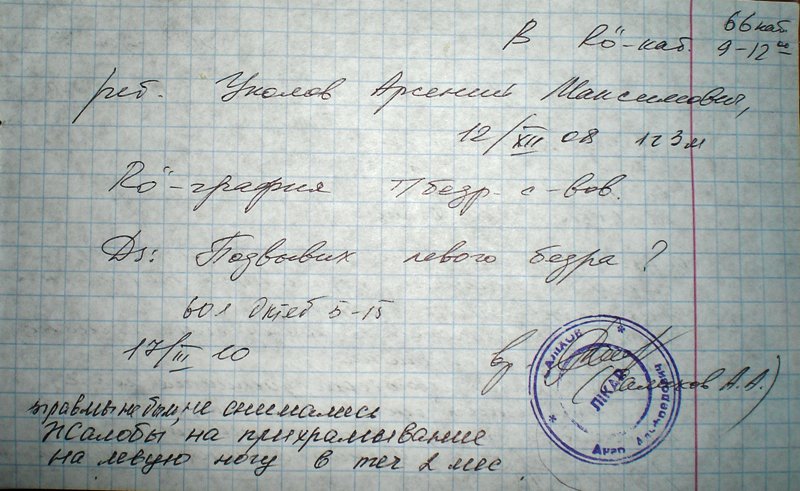 66 каб.
В Rö-каб. 9-12⁰⁰
реб. Уколов Арсений Максимович,
12/XII 08 1г 3м
Rö-графия т/бедр. с-вов.
Ds: Подвывих левого бедра?
60 л Октяб 5-15
17/III 10
вр.
А.А.)
ЛІКАР
травмы не было, не снимались
Жалобы на прихрамывание
на левую ногу в теч 2 мес